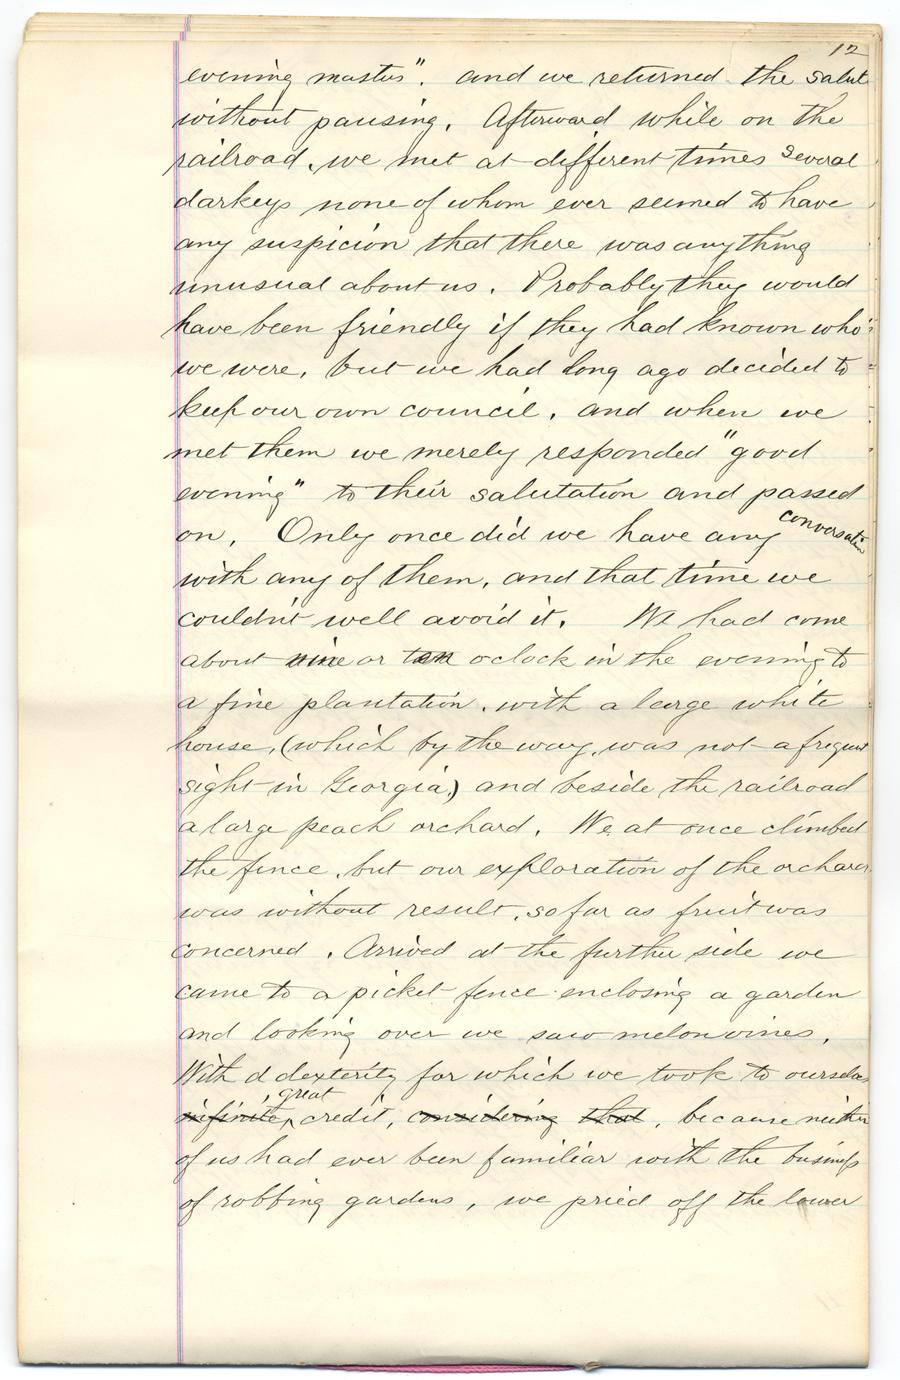 12
evening mastus". and we returned the salute
without pausing. Afterward while on the
railroad, we met at different times several
darkeys none of whom ever seemed to have
any suspicion that there was anything
unusual about us. Probably they would
have been friendly if they had known who
we were, but we had long ago decided to
keep our own council, and when we
met them we merely responded "good
evening" to their salutation and passed
on. Only once did we have any conversation
with any of them, and that time we
couldn't well avoid it. We had come
about nine or ten oclock in the evening to
a fine plantation, with a large white
house, (which by the way, was not a frequent
sight in Georgia,) and beside the railroad
a large peach orchard. We at once climbed
the fence, but our exploration of the orchard
was without result, so far as fruit was
concerned. Arrived at the further side we
came to a picket fence enclosing a garden
and looking over we saw melon vines.
With d dexterity for which we took to ourselves
infinite great credit, considering that, because neither
of us had ever been familiar with the business
of robbing gardens, we pried off the lower